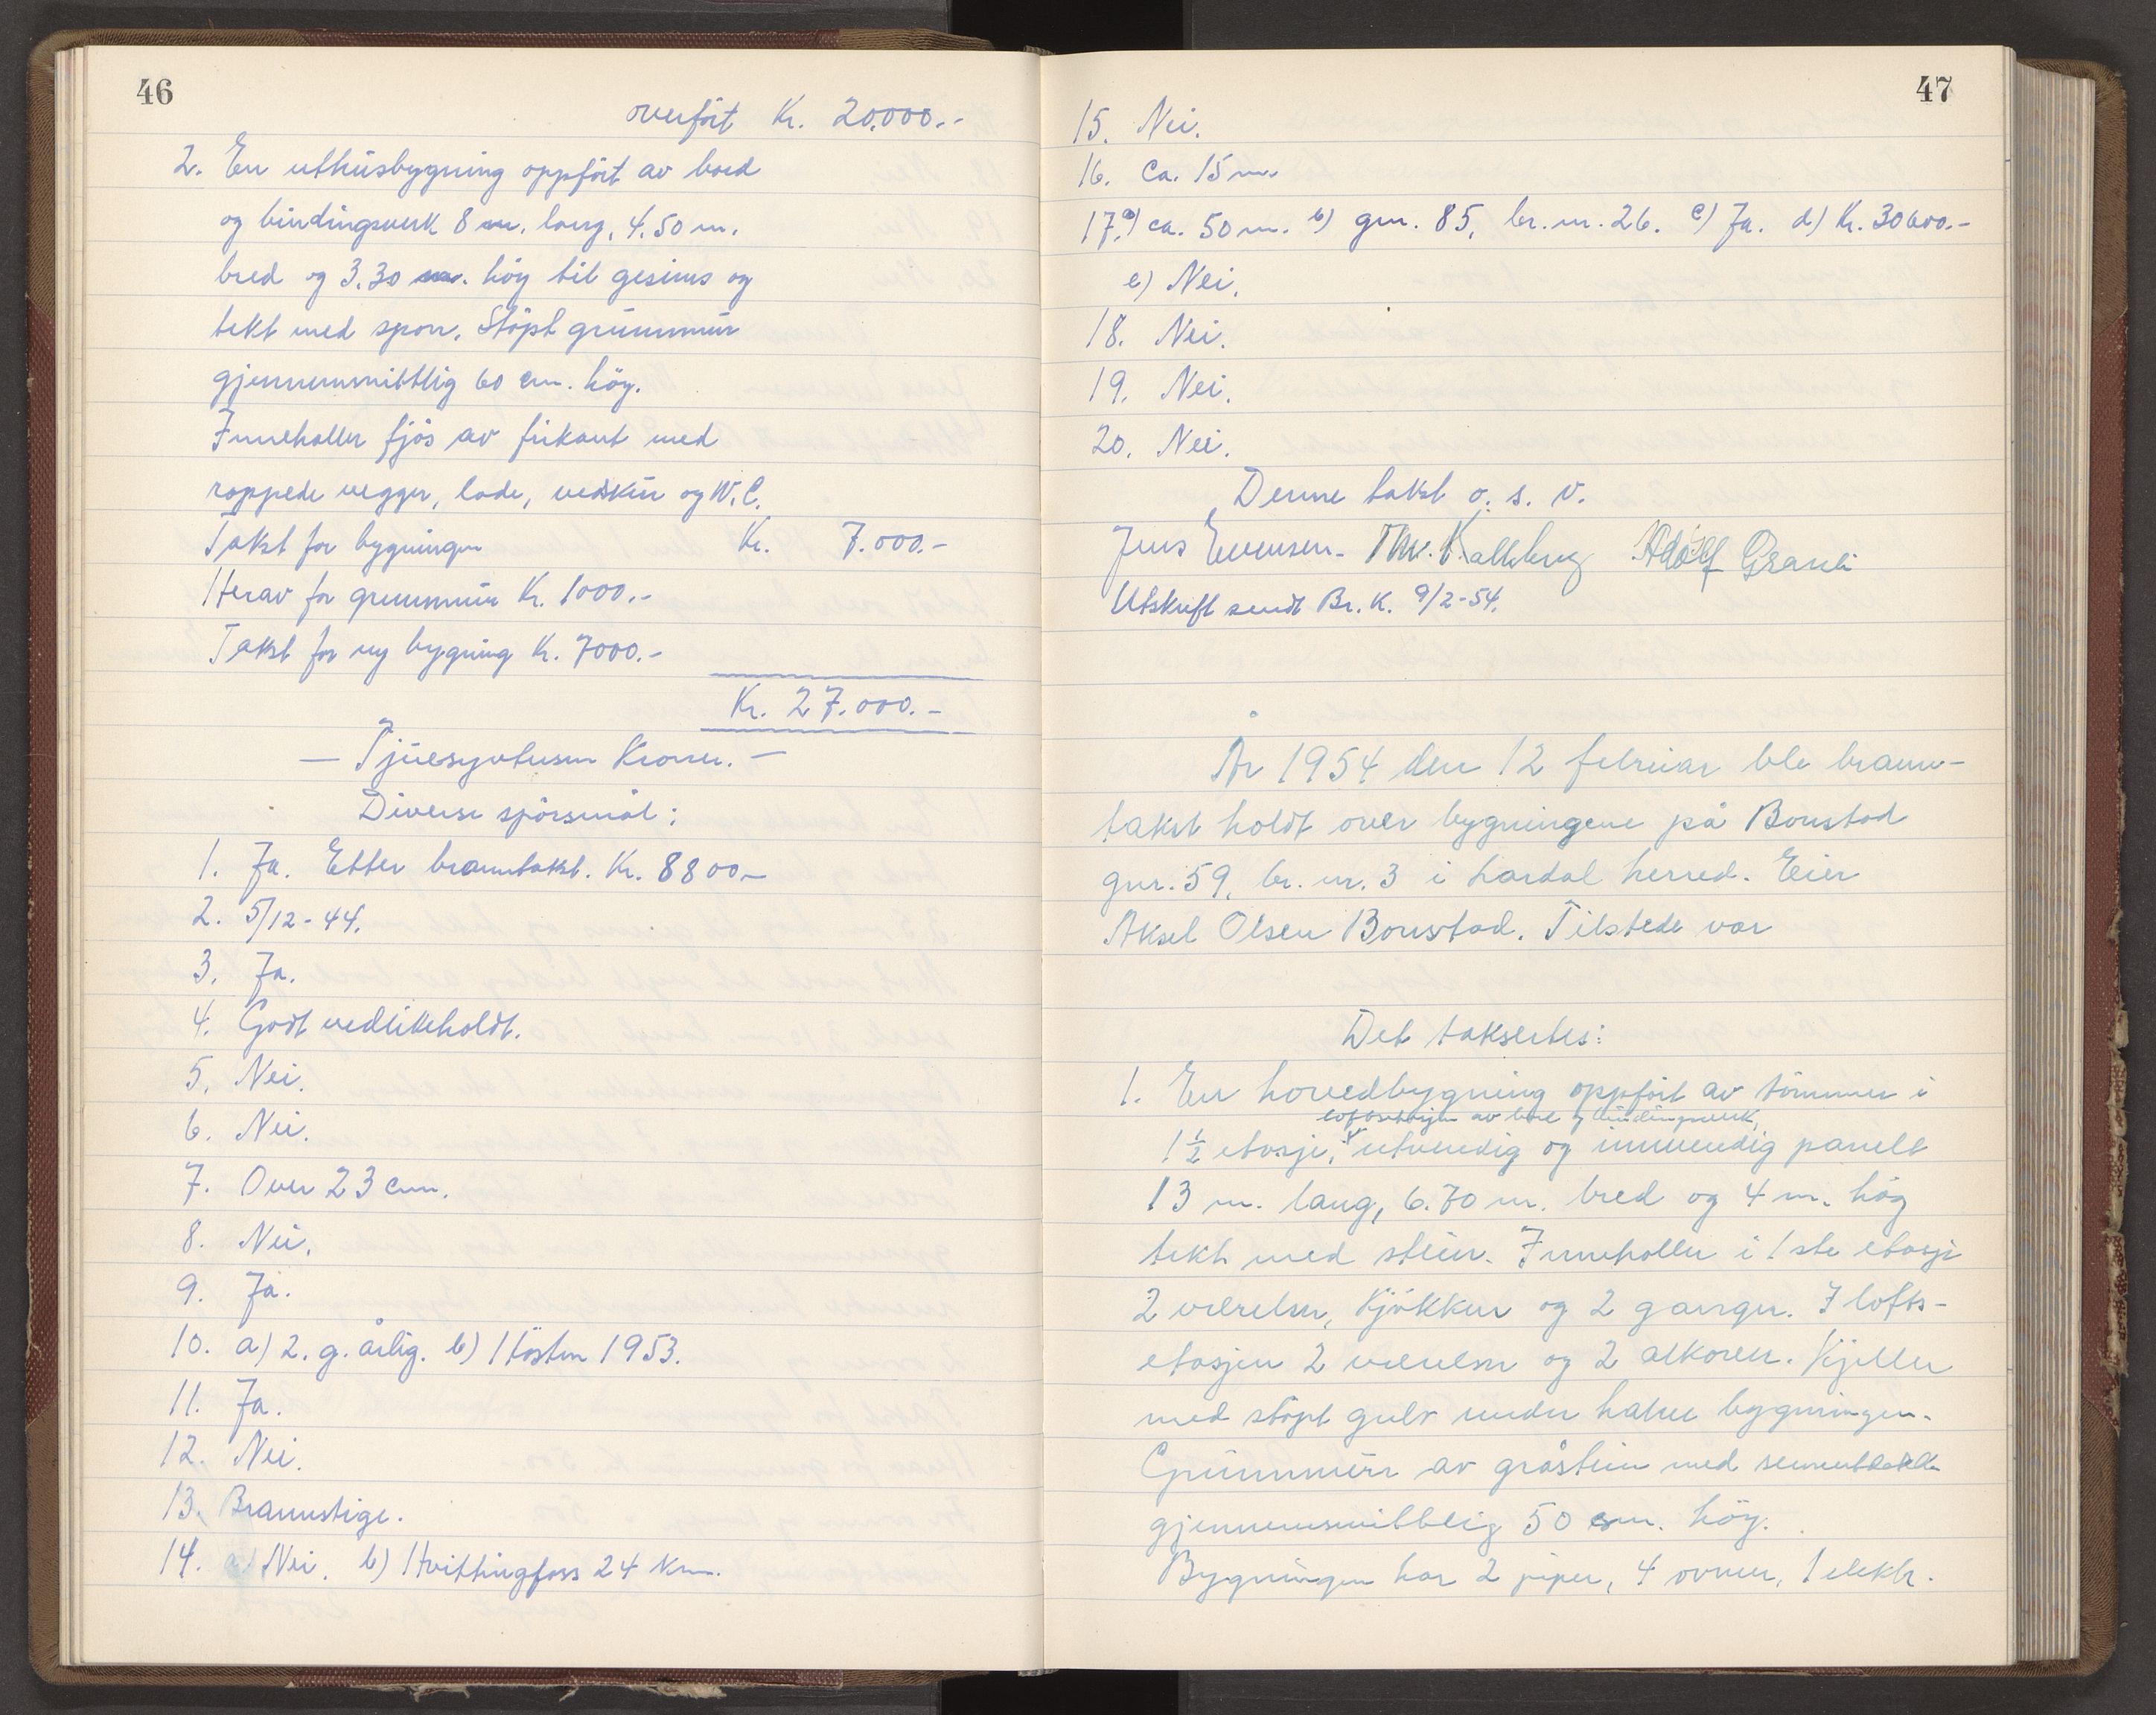 46
overført Kr. 20.000.-
2. En uthusbygning oppført av bord
og bindingsverk 8 m. lang, 4.50 m.
bred og 3.30 m. høy til gesims og
tekt med spon. Støpt grunnmur
gjennemsnittlig 60 cm. høy.
Inneholler fjøs av firkant med
rappede vegger, lade, vedskur og W.C.
Takst for bygningen Kr. 7.000.-
Herav for grunnmur Kr. 1000.-
Takst for ny bygning Kr. 7000.-
Kr. 27.000.-
— Tjuesyvtusen Kroner. —
Diverse spørsmål:
1. Ja. Etter branntakst. Kr. 8800-
2. 5/12-44.
3. Ja.
4. Godt vedlikeholdt.
5. Nei.
6. Nei.
7. Over 23 cm.
8. Nei.
9. Ja.
10. a) 2. g. årlig. b) Høsten 1953.
11. Ja.
12. Nei.
13. Brannstige.
14. a) Nei. b) Hvittingfoss 24 km.
47
15. Nei.
16. Ca. 15 m.
17. a) ca. 50 m. b) gnr. 85, br. nr. 26. c) Ja. d) Kr. 30600.-
e) Nei.
18. Nei.
19. Nei.
20. Nei.
Denne takst o. s. v.
Jens Evensen. Thv. Kallberg Adolf Granli
Utskrift sendt Br. K. 9/2-54.
År 1954 den 12 februar ble brann-
takst holdt over bygningene på Bonstad
gnr. 59, br. nr. 3 i Lardal herred. Eier
Aksel Olsen Bonstad. Tilstede var
Det taksertes:
1. En hovedbygning oppført av tømmer i
loftsetasjen av bord og bindingsverk,
1 1/2 etasje, utvendig og innvendig panelt
13 m. lang, 6.70 m. bred og 4 m. høg
tekt med stein. Inneholler i 1ste etasje
2 værelser, kjøkken og 2 ganger. I lofts-
etasjen 2 værelser og 2 alkover. Kjeller
med støpt gulv under halve bygningen.
Grunnmur av gråstein med
gjennemsnittlig 50 cm. høy.
Bygningen har 2 piper, 4 ovner, 1 elektr.